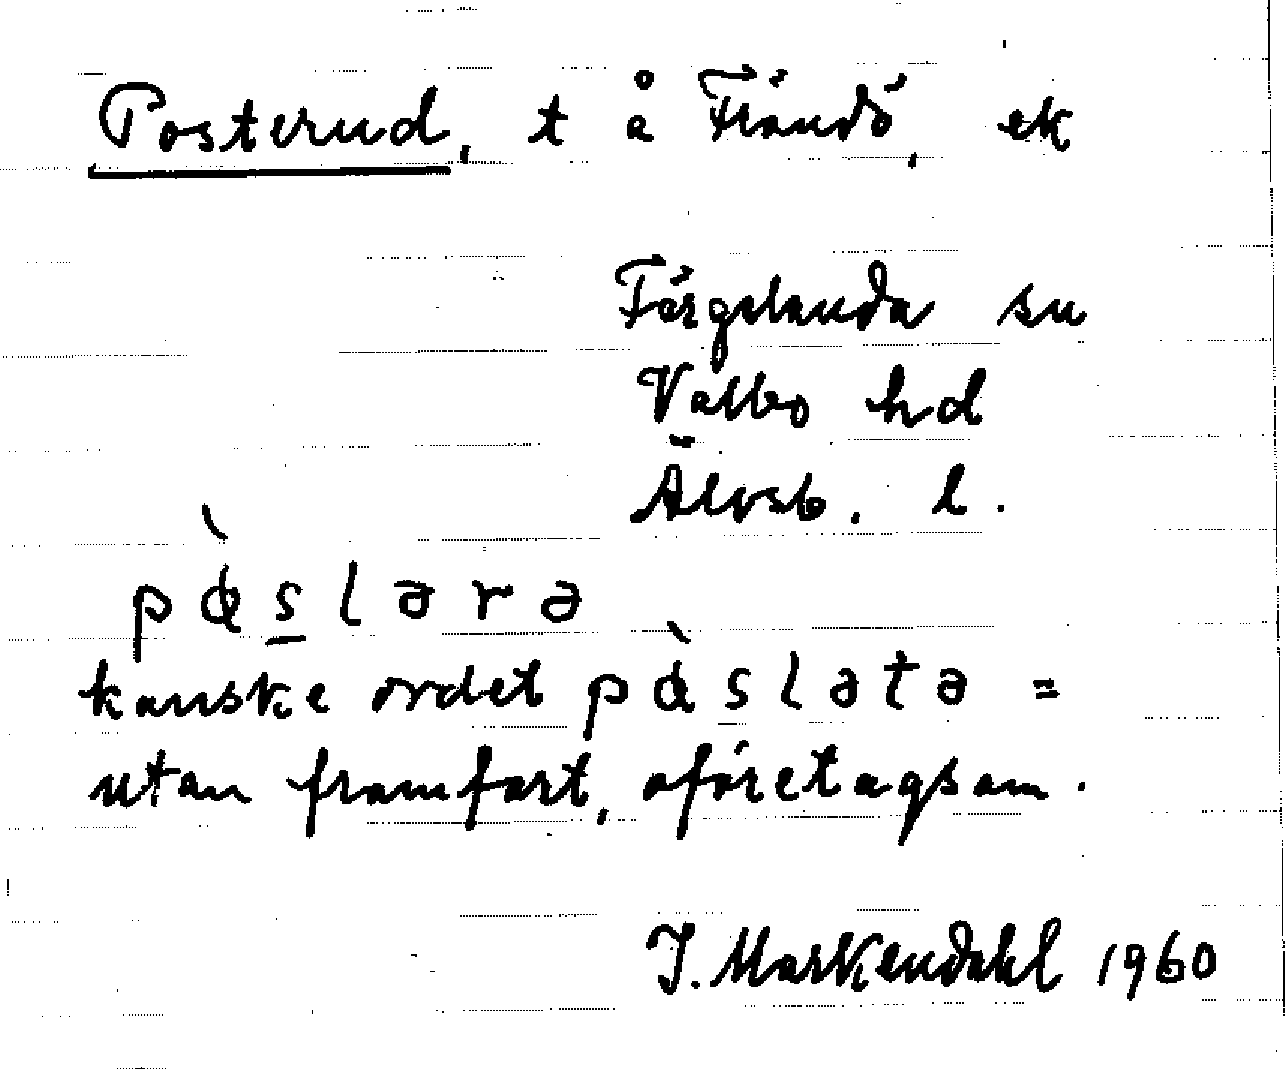 Posterud, t å Frändö, ek
Färgelanda sn
Valbo hd
Älvsb. l.
pɑ̀slərə
kanske ordet pɑ̀slətə =
utan framfart, oföretagsam.
J. Markendahl 1960